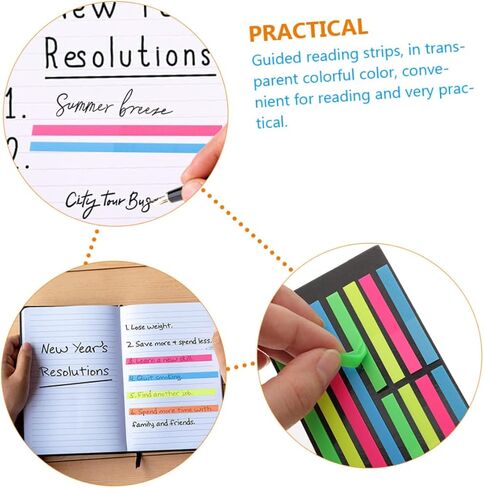 New Year
Resolutions
1. Summer breeze
2.
City Tour Bug
PRACTICAL
Guided reading strips, in trans-
parent colorful color, conve-
nient for reading and very prac-
tical.
New Year's
Resolutions
1. Lose weight.
2. Save more & spend less.
3. Learn a new skill.
4. Quit smoking.
5. Find another job.
6. Spend more time with
family and friends.